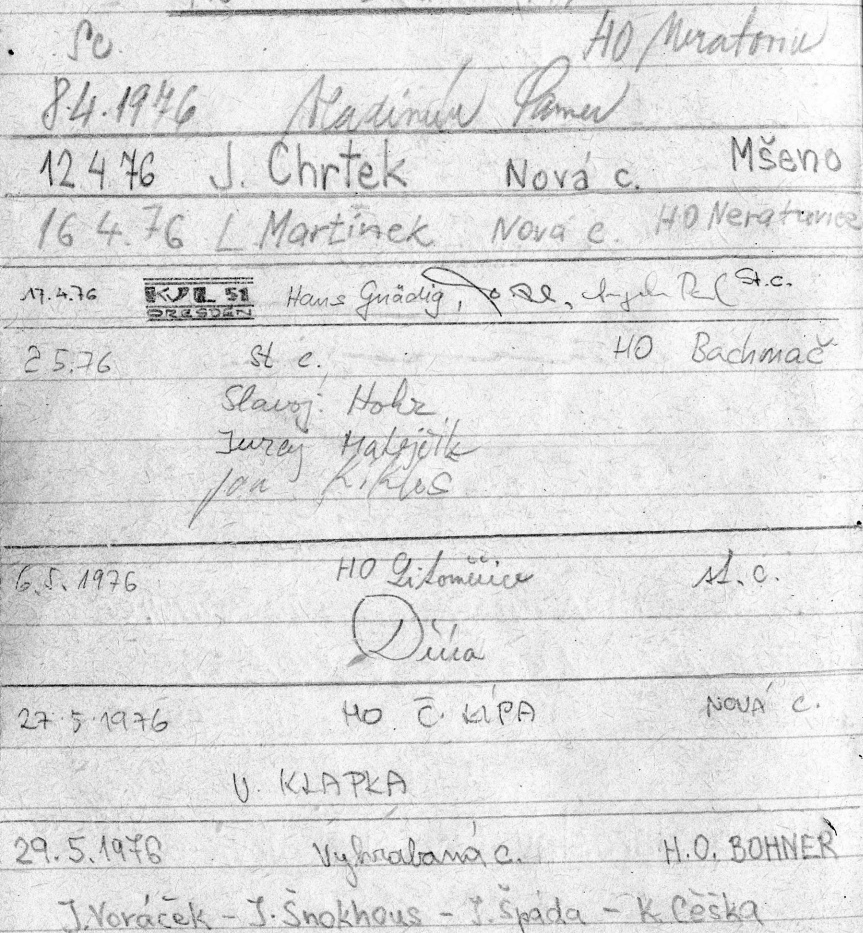 HO
8.4.1976
12 4 76 J. Chrtek Nová c. Mšeno
16 4.76 L Martínek Nová c. HO Neratovice
17.4.76 KVL 51 DRESDEN Hans Gnädig, St.c.
2 5.76 St c. HO Bachmač
Slavoj Hokr
Juraj Matejčík
Jan
6.5.1976 HO st. c.
27 5 1976 HO Č. LÍPA NOVÁ c.
V. KLAPKA
29.5.1976 Vyhrabaná c. H.O. BOHNER
J. Voráček - J. Šnokhous - J. Špáda - K. Češka